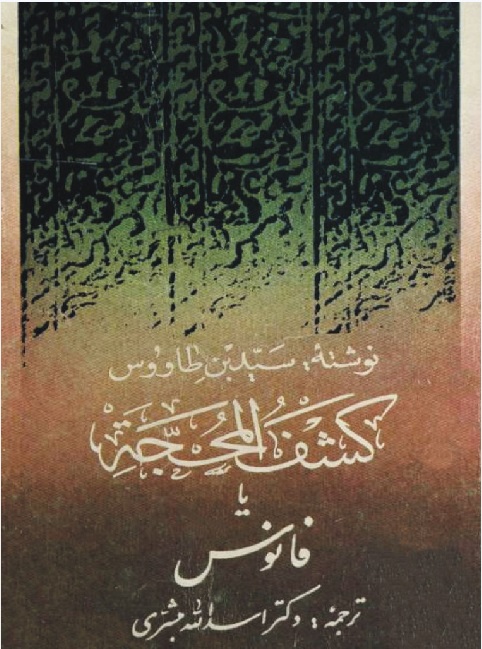 نوشتهٔ: سیّد بن طاووس
کشفُ المحُجَّةِ
یا
فانوس
ترجمهٔ: دکتر اسدالله مبشّری